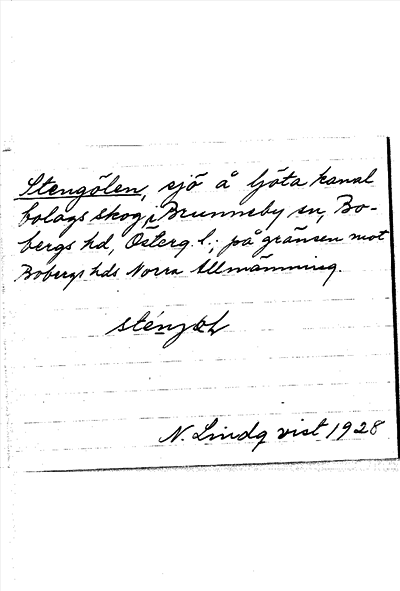 Stengölen, sjö å Göta kanal
bolags skog, Brunneby sn, Bo-
bergs hd, Österg. l.; på gränsen mot
Bobergs hds Norra Allmänning.
N. Lindqvist 1928